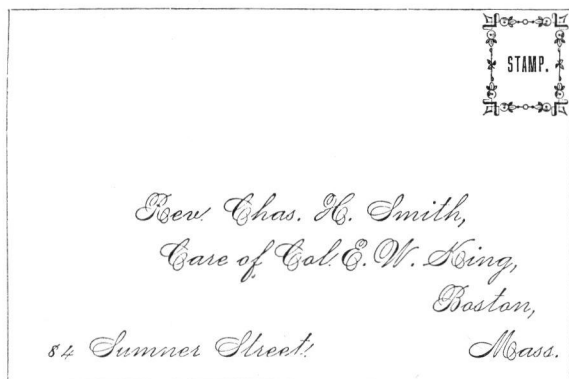 STAMP.
Rev. Chas. H. Smith,
Care of Col. E. W. King,
Boston,
84 Sumner Street. Mass.